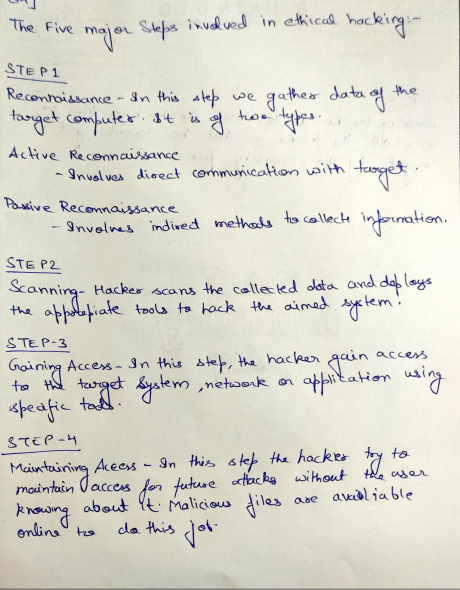 The Five major Steps involved in ethical hacking:-
STEP 1
Reconnoissance - In this step we gather data of the
target computer. It is of two types.
Active Reconnaissance
- Involves direct communication with target.
Passive Reconnaissance
- Involves indirect methods to collect information.
STEP2
Scanning - Hacker scans the collected data and deploys
the appropiate tools to hack the aimed system.
STEP-3
Gaining Access - In this step, the hacker gain access
to the target System, network or application using
specific tools.
STEP-4
Maintaining Access - In this step the hacker try to
maintain access for future attacks without the user
knowing about it. Malicious files are availiable
online to do this job.